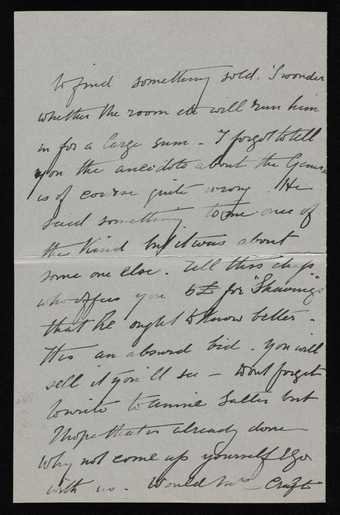 to find something sold. I wonder
whether the room etc will run him
in for a large sum - I forgot to tell
you the anecdote about the
is of course quite wrong. He
said something to me once of
the kind but it was about
some one else. Tell this chap
who offers you 5£ for "Shavings"
that he ought to know better -
Its an absurd bid. You will
sell it you'll see - Dont forget
to write to Annie but
I hope that is already done
Why not come up yourself & go
with us. Would Mrs